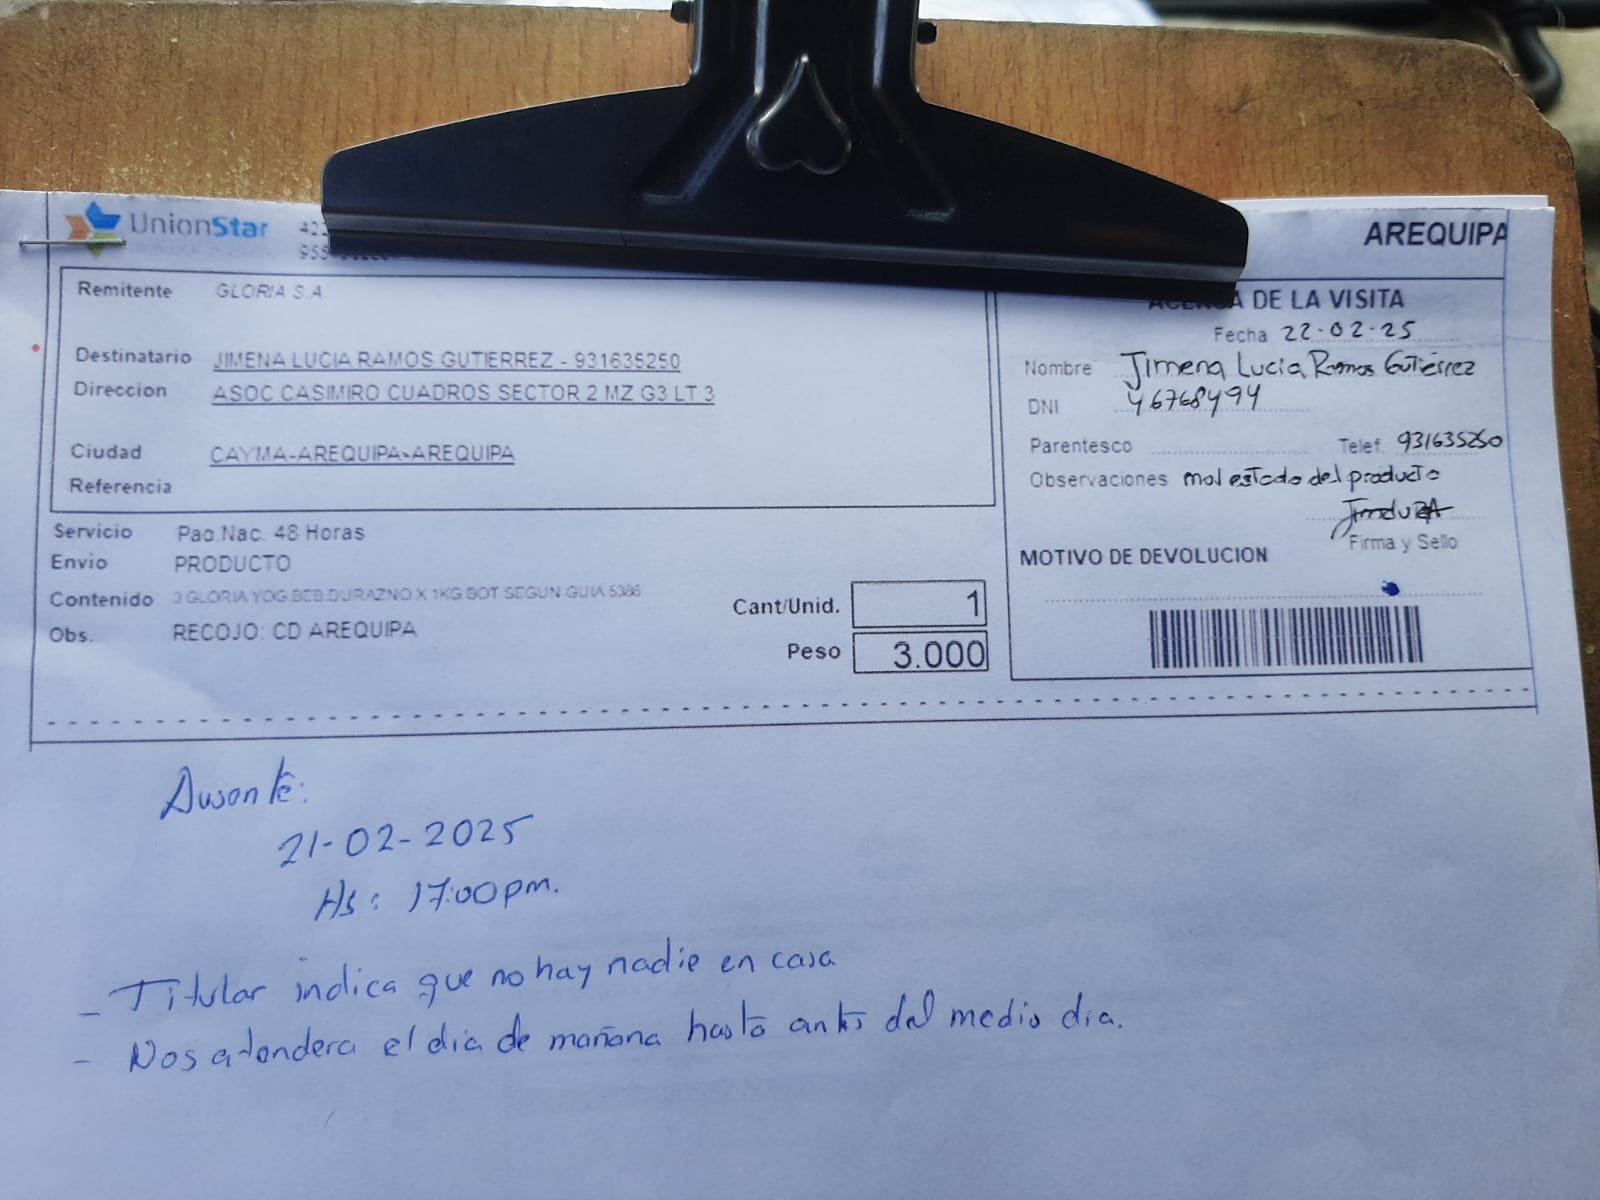 UnionStar
AREQUIPA
Remitente GLORIA S.A.
Destinatario JIMENA LUCIA RAMOS GUTIERREZ - 931635250
Direccion ASOC CASIMIRO CUADROS SECTOR 2 MZ G3 LT 3
Ciudad CAYMA-AREQUIPA-AREQUIPA
Referencia
Servicio Paq.Nac. 48 Horas
Envio PRODUCTO
Contenido 3 GLORIA YOG.BEB.DURAZNO X 1KG BOT SEGUN GUIA 5386
Obs. RECOJO: CD AREQUIPA
Cant/Unid. 1
Peso 3.000
DE LA VISITA
Fecha 22-02-25
Nombre Jimena Lucia Ramos Gutiérrez
DNI 46768494
Parentesco Telef. 931635250
Observaciones mal estado del producto
Firma y Sello
MOTIVO DE DEVOLUCION
Ausente:
21-02-2025
Hs: 17:00pm.
- Titular indica que no hay nadie en casa
- Nos atendera el dia de mañana hasta antes del medio dia.